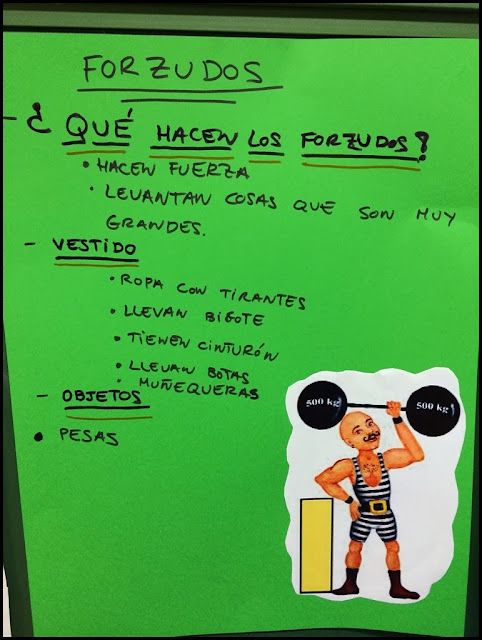 FORZUDOS
- ¿QUÉ HACEN LOS FORZUDOS?
• HACEN FUERZA
• LEVANTAN COSAS QUE SON MUY
GRANDES.
- VESTIDO
• ROPA CON TIRANTES
• LLEVAN BIGOTE
• TIENEN CINTURÓN
• LLEVAN BOTAS
• MUÑEQUERAS
- OBJETOS
• PESAS
500 kg 500 kg